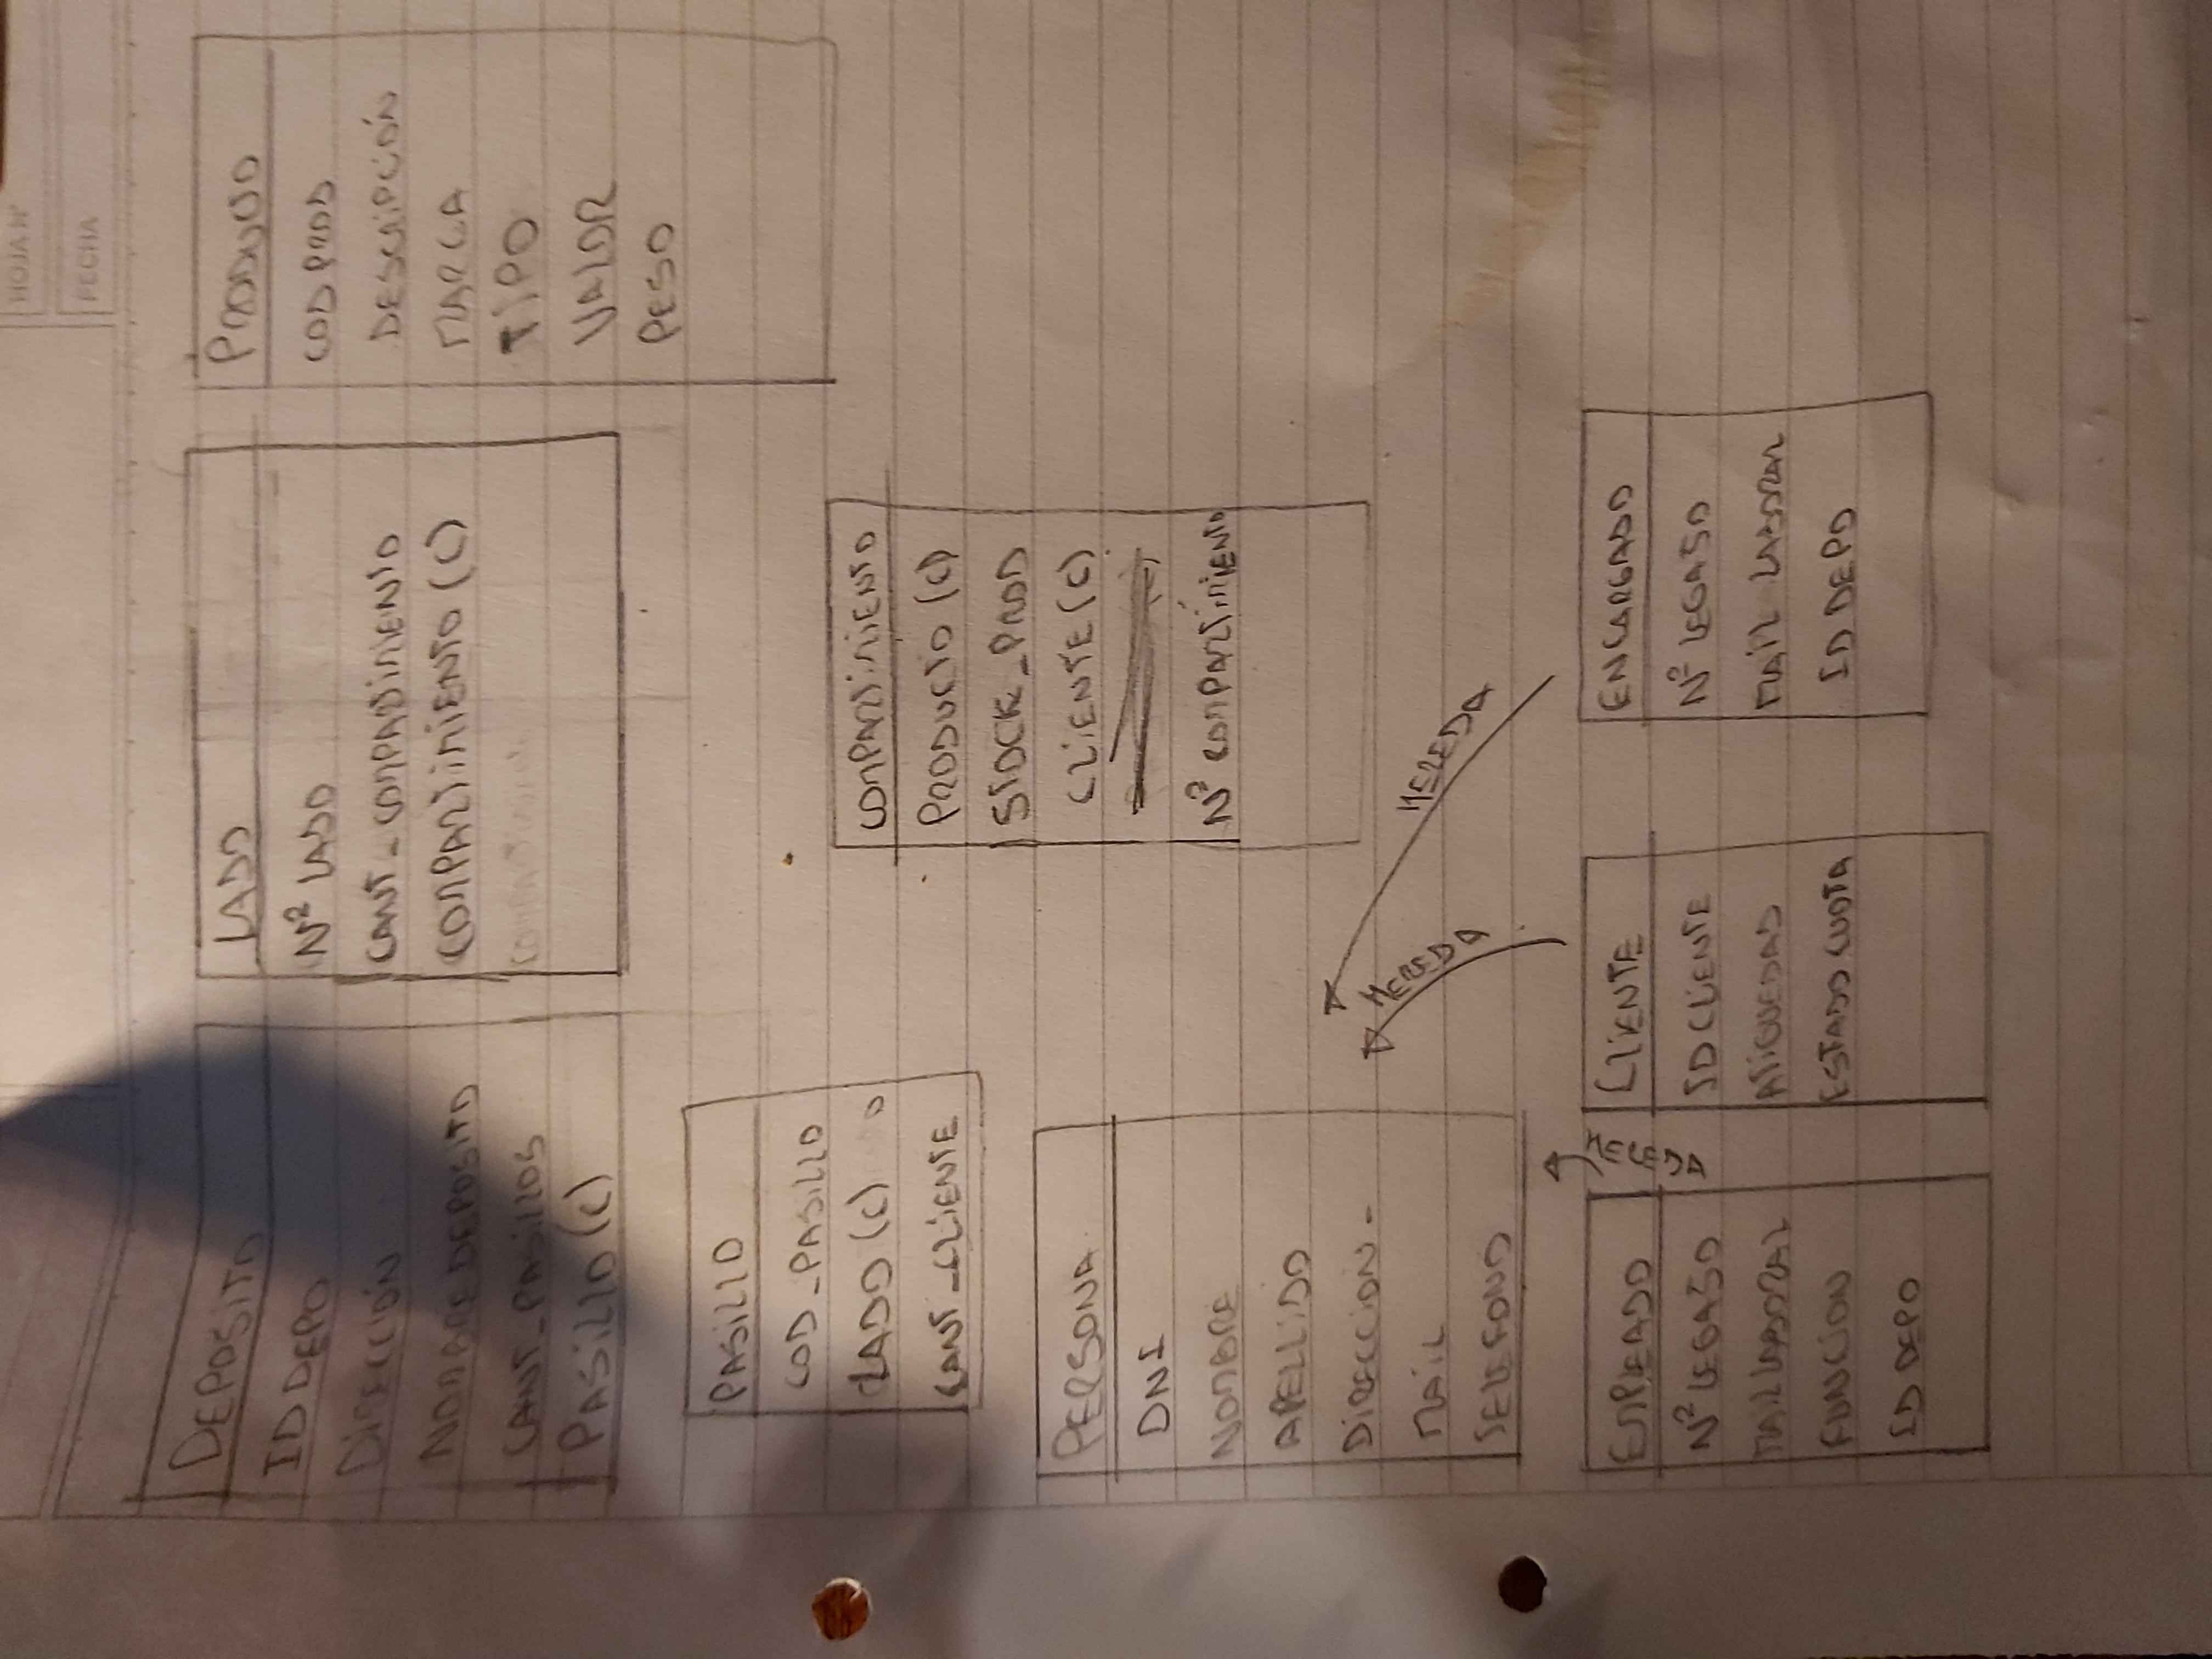 HOJA Nº
FECHA
DEPOSITO
ID DEPO
DIRECCIÓN
NOMBRE DEPOSITO
CANT_PASILLOS
PASILLO (C)
LADO
Nº LADO
CANT_COMPARTIMIENTO
COMPARTIMIENTO (C)
PRODUCTO
COD PROD
DESCRIPCIÓN
MARCA
TIPO
VALOR
PESO
PASILLO
COD_PASILLO
LADO (C)
CANT_CLIENTE
COMPARTIMIENTO
PRODUCTO (C)
STOCK_PROD
CLIENTE (C)
Nº COMPARTIMIENTO
PERSONA
DNI
NOMBRE
APELLIDO
DIRECCION -
MAIL
TELEFONO
HEREDA
HEREDA
HEREDA
EMPLEADO
Nº LEGAJO
MAIL LABORAL
FUNCION
ID DEPO
CLIENTE
ID CLIENTE
ATIGUEDAD
ESTADO CUOTA
ENCARGADO
Nº LEGAJO
MAIL LABORAL
ID DEPO